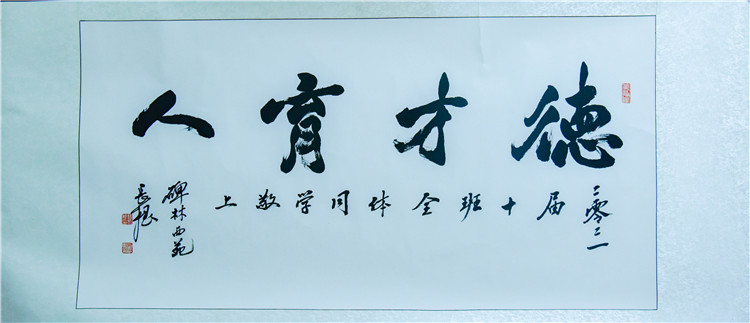 德才育人
二零二一
届十班全体同学敬上
碑林西苑